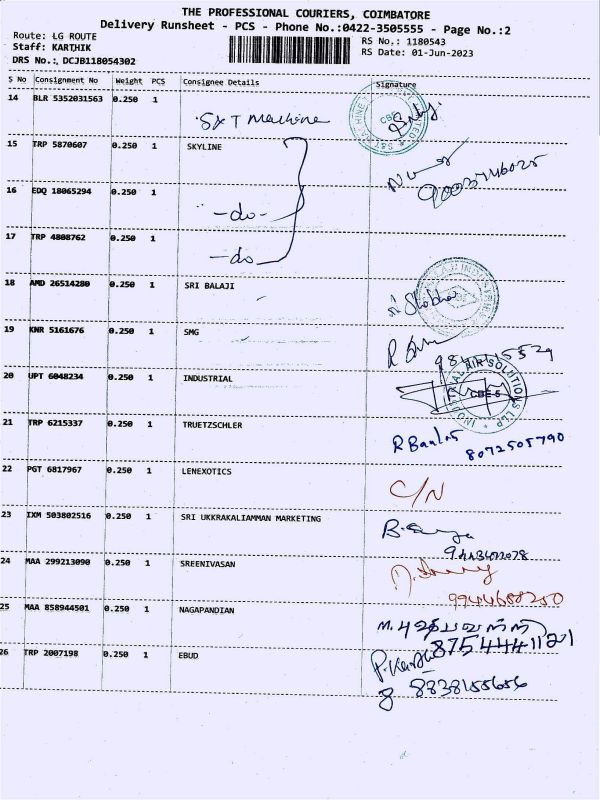 THE PROFESSIONAL COURIERS, COIMBATORE
Delivery Runsheet - PCS - Phone No.:0422-3505555 - Page No.:2
Route: LG ROUTE
RS No.: 1180543
Staff: KARTHIK
RS Date: 01-Jun-2023
DRS No.: DCJB118054302
S No Consignment No Weight PCS Consignee Details Signature
14 BLR 5352031563 0.250 1 S&T Machine
15 TRP 5870607 0.250 1 SKYLINE
16 EDQ 18065294 0.250 1 -do-
17 TRP 4808762 0.250 1 -do-
18 AMD 26514280 0.250 1 SRI BALAJI
19 KNR 5161676 0.250 1 SMG
20 UPT 6048234 0.250 1 INDUSTRIAL INDUSTRIAL AIR SOLUTIONS LLP CBE-5
21 TRP 6215337 0.250 1 TRUETZSCHLER
8072505790
22 PGT 6817967 0.250 1 LENEXOTICS C/N
23 IXM 503802516 0.250 1 SRI UKKRAKALIAMMAN MARKETING
24 MAA 299213090 0.250 1 SREENIVASAN
25 MAA 858944501 0.250 1 NAGAPANDIAN
26 TRP 2007198 0.250 1 EBUD
8838155656